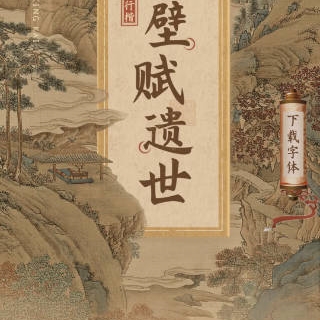 行楷
壁赋遗世
下载字体